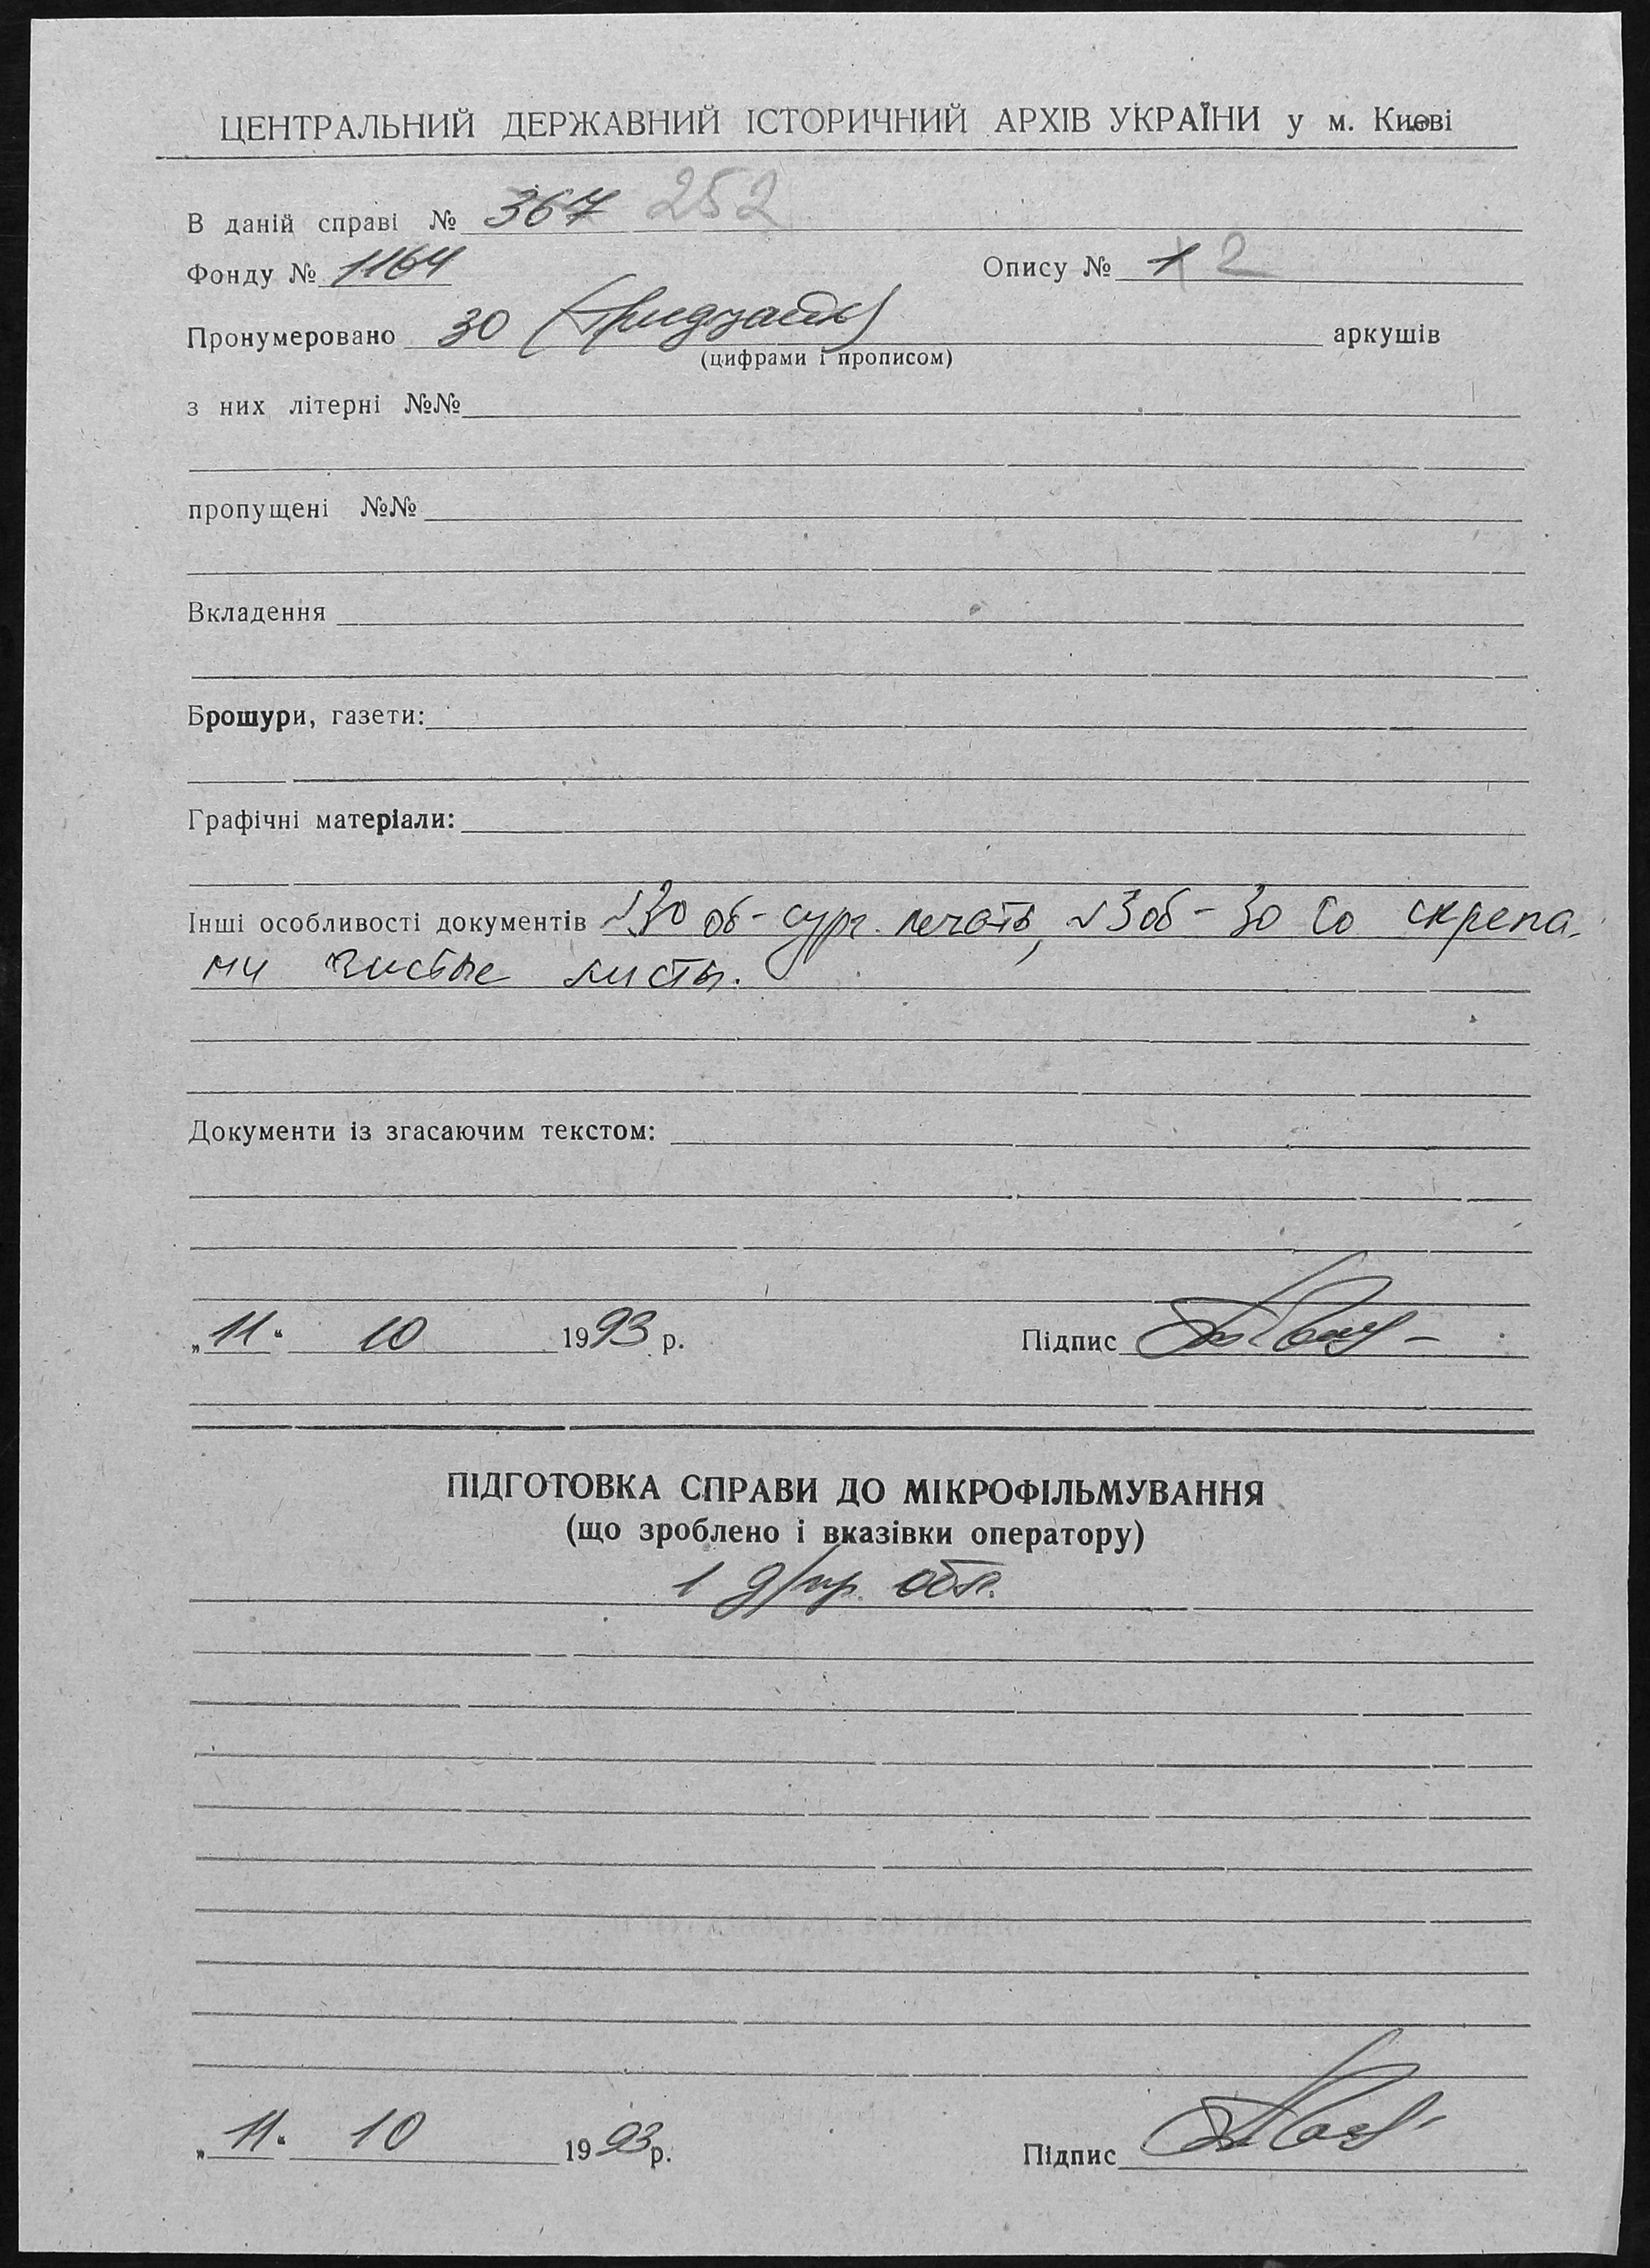 ЦЕНТРАЛЬНИЙ ДЕРЖАВНИЙ ІСТОРИЧНИЙ АРХІВ УКРАЇНИ у м. Києві
В даній справі № 367 252
Фонду № 1164 Опису № 1 2
Пронумеровано 30 (тридцать) аркушів
(цифрами і прописом)
з них літерні №№
пропущені №№
Вкладення
Брошури, газети:
Графічні матеріали:
Інші особливості документів л30 об - сург. печать, л3об - 30 со скрепа-
ми чистые листы.
Документи із згасаючим текстом:
„11“ 10 1993 р.
Підпис
ПІДГОТОВКА СПРАВИ ДО МІКРОФІЛЬМУВАННЯ
(що зроблено і вказівки оператору)
1
„11“ 10 1993 р.
Підпис